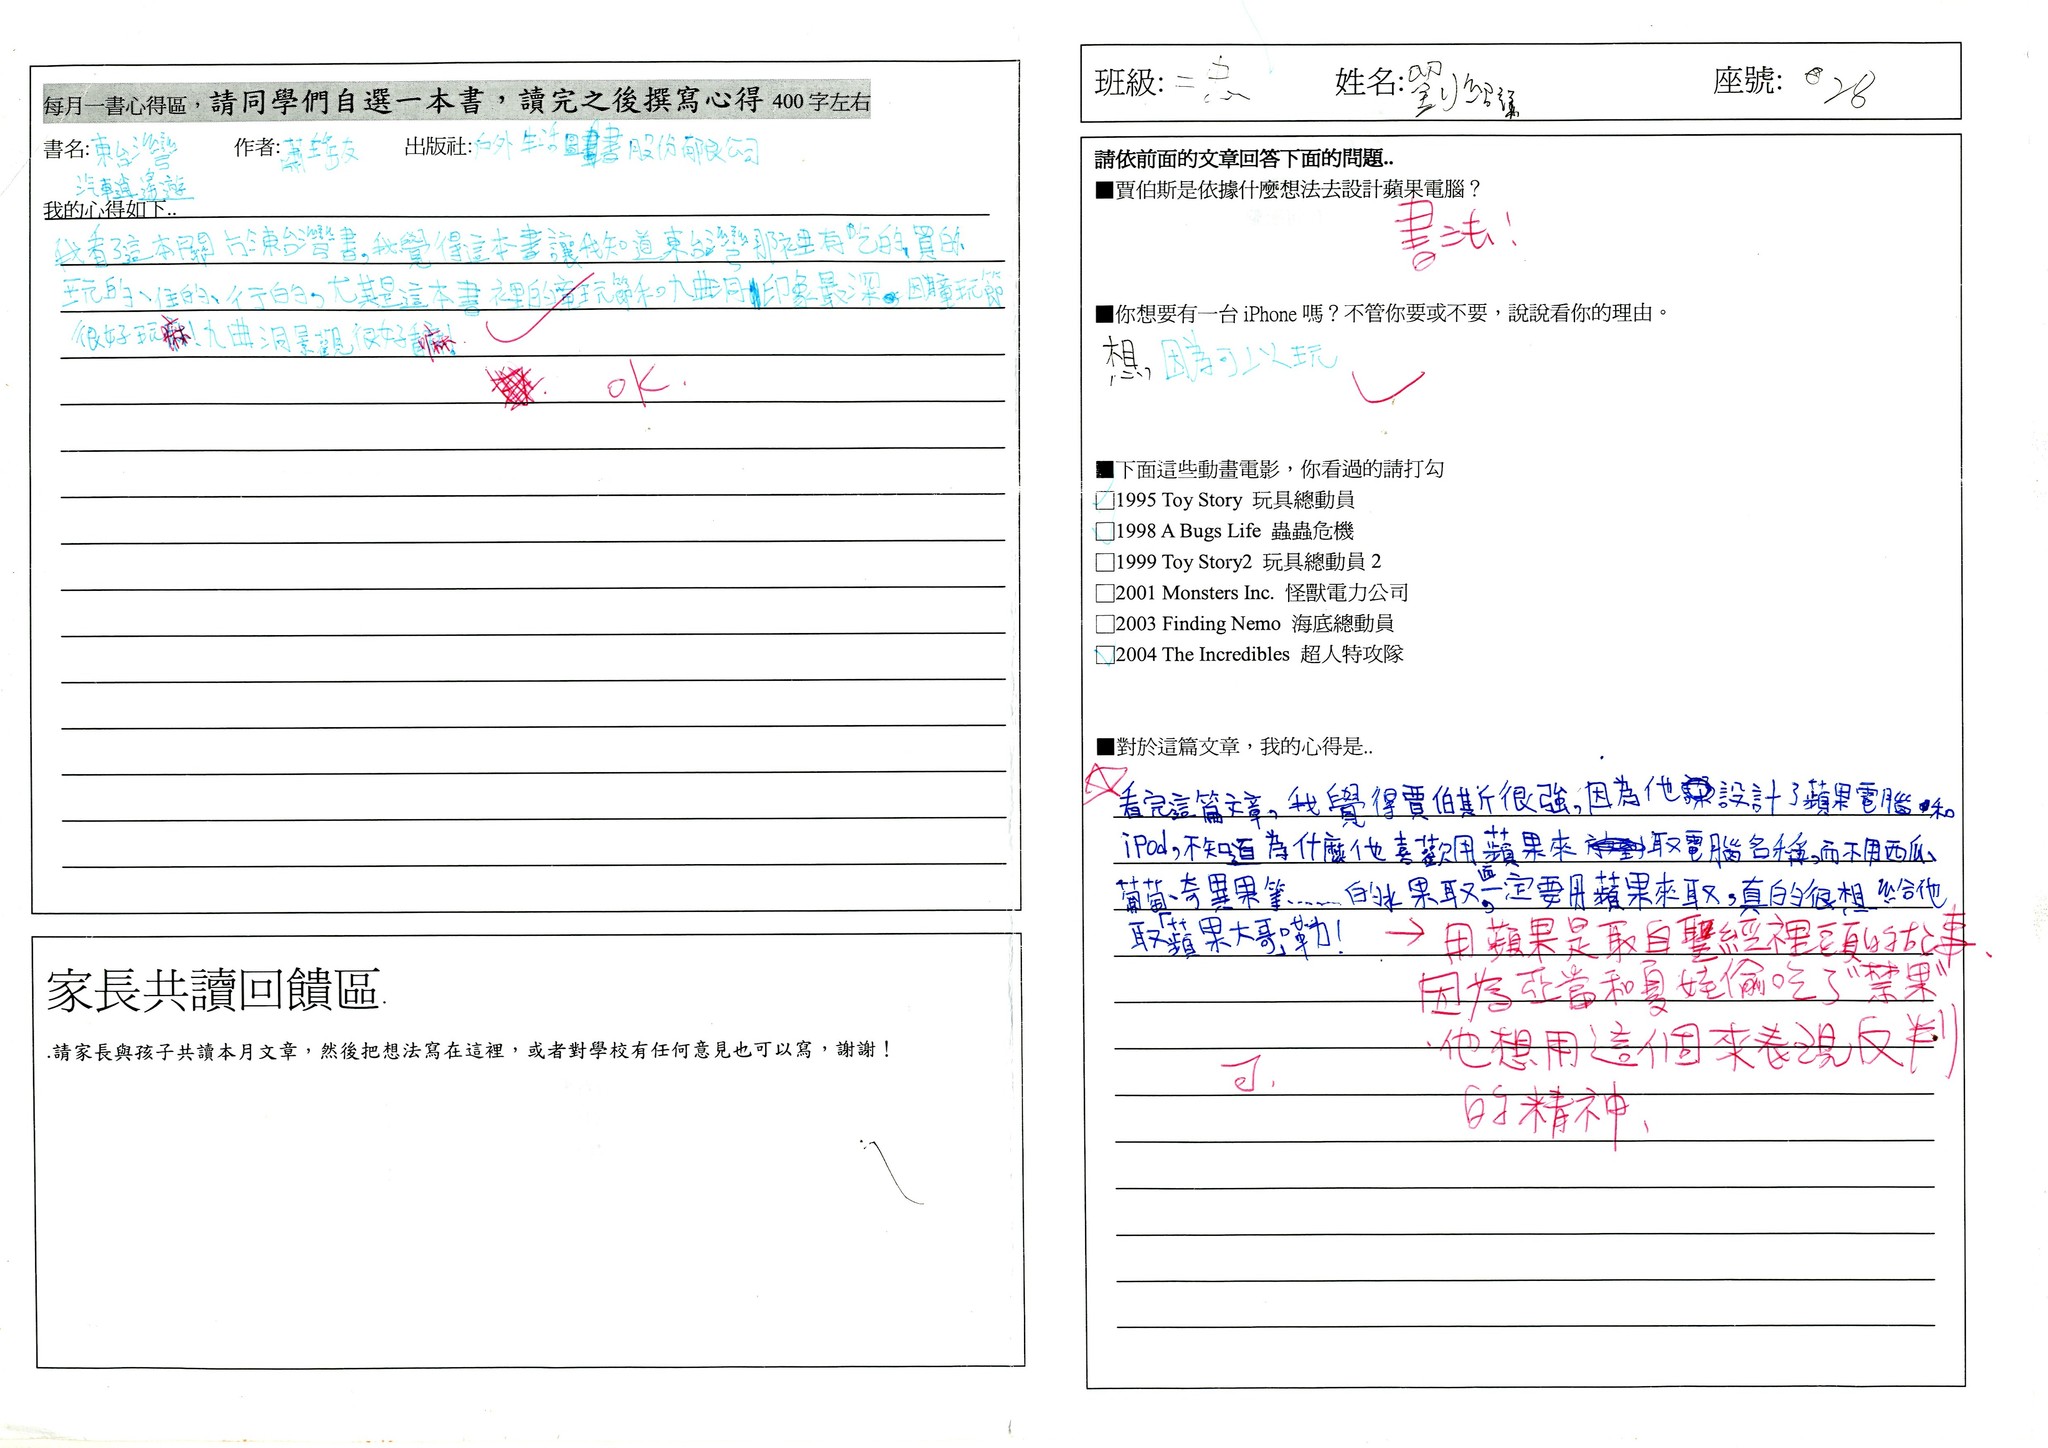 每月一書心得區，請同學們自選一本書，讀完之後撰寫心得 400 字左右
書名:東台灣 作者: 出版社:戶外生活圖書股份有限公司
汽車逍遙遊
我的心得如下..
我看了這本關於東台灣書,我覺得這本書讓我知道東台灣那裡有吃的,買的
玩的、住的、行的。尤其是這本書裡的童玩節和九曲洞印象最深。因童玩節
很好玩嘛!九曲洞景觀很好看嘛!
OK.
家長共讀回饋區.
.請家長與孩子共讀本月文章，然後把想法寫在這裡，或者對學校有任何意見也可以寫，謝謝！
班級:二忠 姓名:劉 座號:28
請依前面的文章回答下面的問題..
■賈伯斯是依據什麼想法去設計蘋果電腦？
書法!
■你想要有一台 iPhone 嗎？不管你要或不要，說說看你的理由。
想,因為可以玩
■下面這些動畫電影，你看過的請打勾
□1995 Toy Story 玩具總動員
□1998 A Bugs Life 蟲蟲危機
□1999 Toy Story2 玩具總動員 2
□2001 Monsters Inc. 怪獸電力公司
□2003 Finding Nemo 海底總動員
□2004 The Incredibles 超人特攻隊
■對於這篇文章，我的心得是..
看完這篇文章,我覺得賈伯斯很強,因為他設計了蘋果電腦和
iPod,不知道為什麼他喜歡用蘋果來取電腦名稱,而不用西瓜、
葡萄、奇異果等……的水果取,一定要用蘋果來取,真的很想給他
取「蘋果大哥」嘞!
→用蘋果是取自聖經裡頭的故事、
因為亞當和夏娃偷吃了"禁果"
他想用這個來表現反判
的精神、
可.